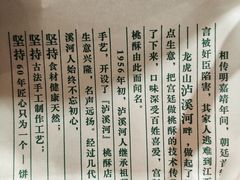 相传明嘉靖年间，朝廷首
言被奸臣陷害，其家人逃难到江
——龙虎山泸溪河畔，做起了
点生意，把宫廷做桃酥的技术传
了下来，口味深受百姓喜爱，
桃酥由此而闻名。
1956年初，泸溪河人继承祖
手艺，开设了『泸溪河』桃酥店
生意兴隆，名声远扬。经过几代
溪河人始终不忘初心，
坚持食材健康天然；
坚持古法手工制作工艺；
坚持60年匠心只为一个——饼